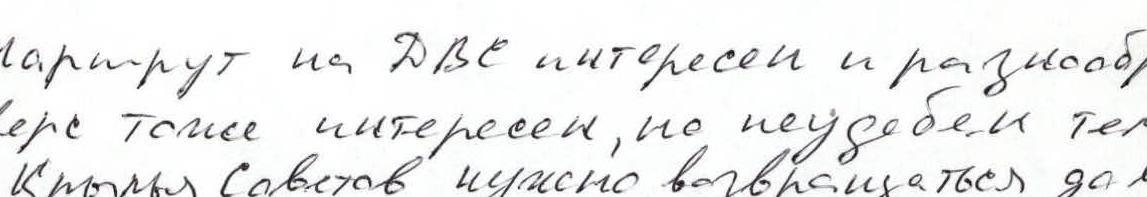 Маршрут на ДВС интересен и разнообр
ерс тоже интересен, но неудобен тем
Крылья Советов нужно возвращаться дал